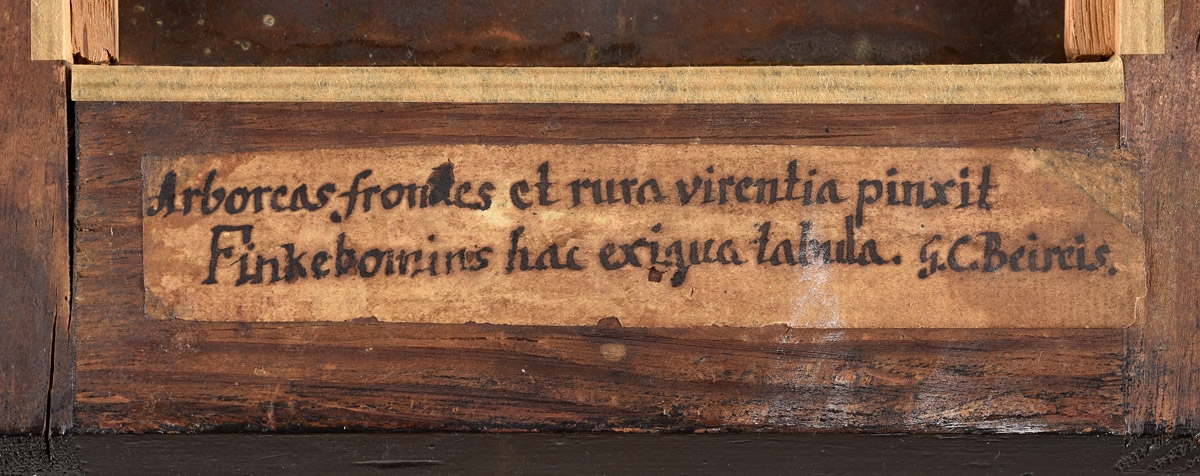 Arboreas frondes et rura virentia pinxit
Finkebomins hac exigua tabula. G.C.Beireis.